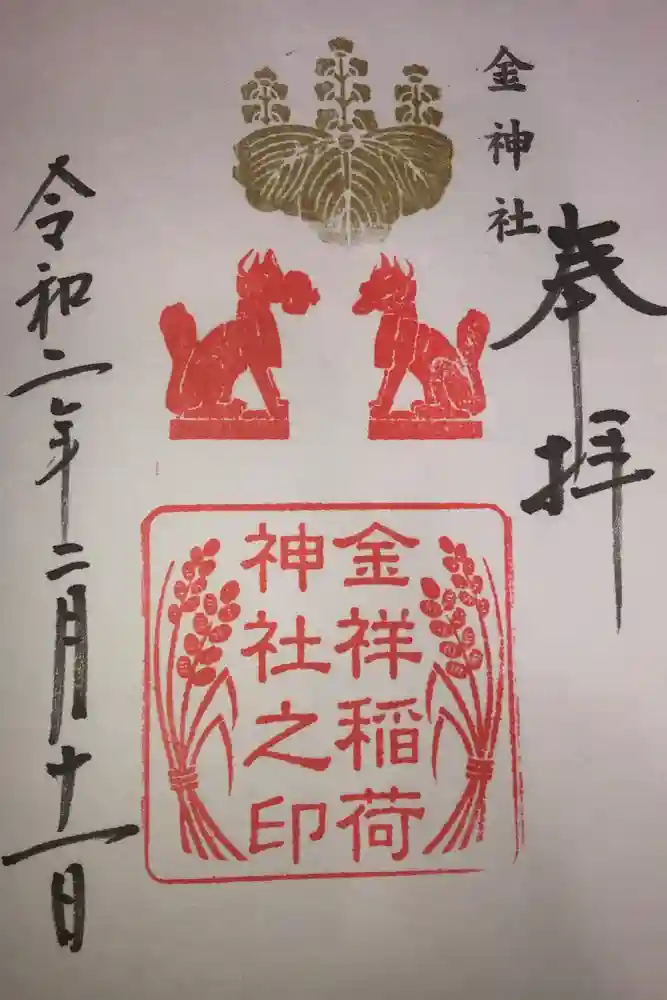 奉拝
金神社
金祥稲荷
神社之印
令和二年二月十一日